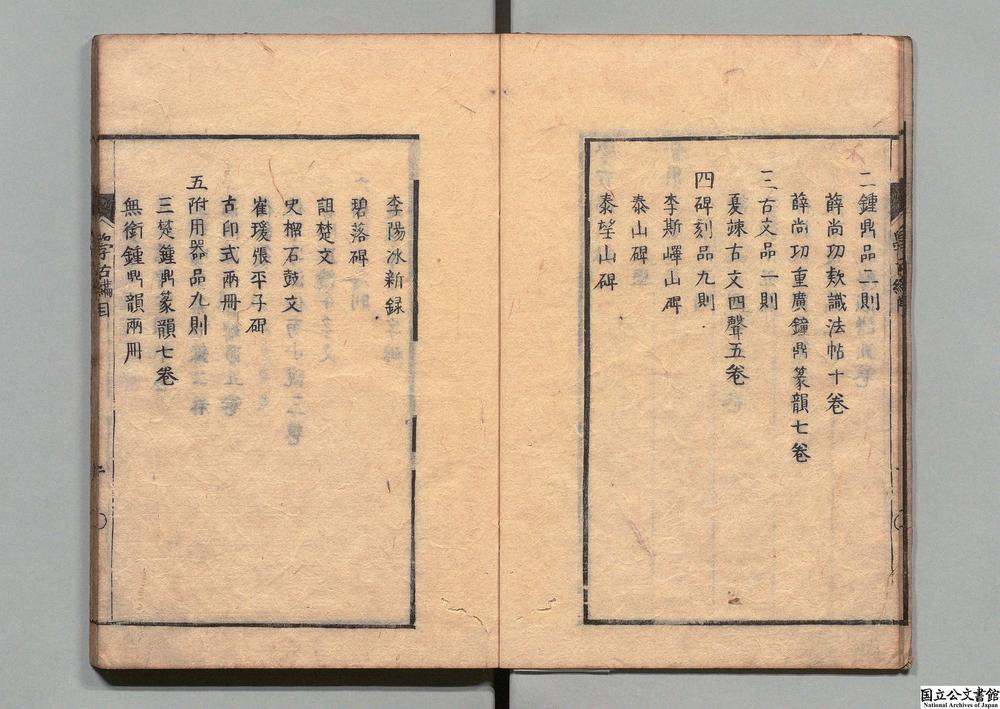 二鍾鼎品二則
薛尚功欵識法帖十卷
薛尚功重廣鐘鼎篆韻七卷
三古文品一則
夏竦古文四聲五卷
四碑刻品九則
李斯嶧山碑
泰山碑
秦望山碑
李陽冰新録
碧落碑
詛楚文
史榴石鼓文
崔瑗張平子碑
古印式兩冊
五附用器品九則
三䇿鍾鼎篆韻七卷
無銜鍾鼎韻兩冊
學古編目
二
国立公文書館
National Archives of Japan